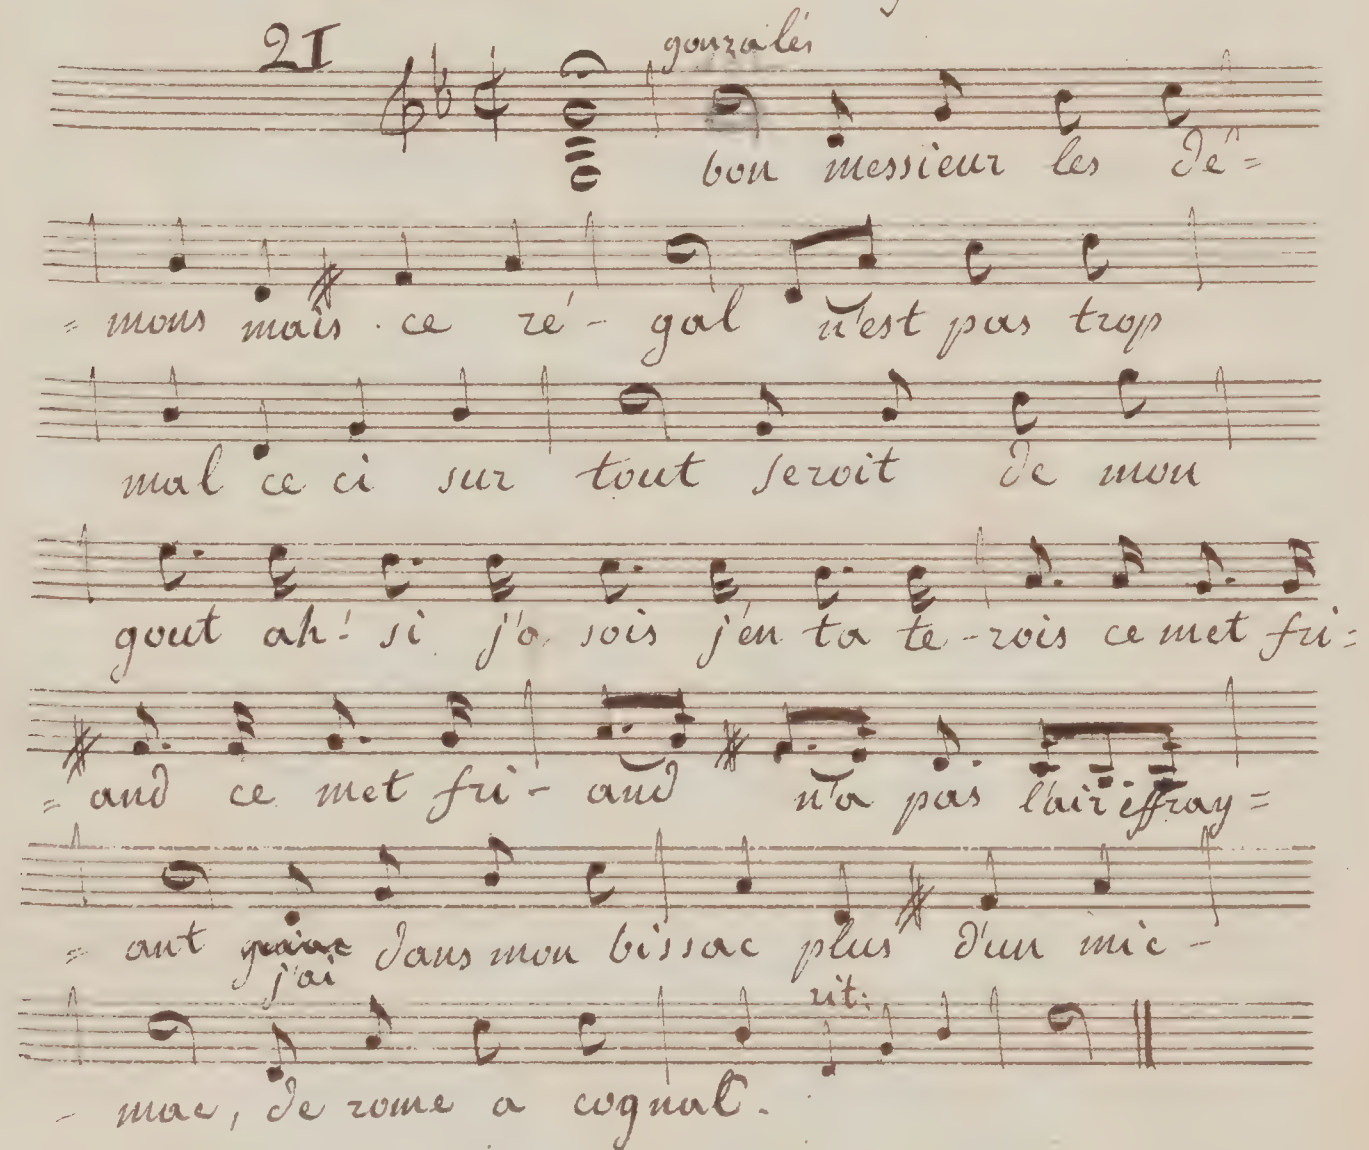 21
gonzalés
bon messieur les dé=
= mons mais ce ré - gal n'est pas trop
mal ce ci sur tout seroit de mon
gout ah! si j'o sois j'en ta te - rois ce met fri=
= and ce met fri - and n'a pas l'air effray=
= ant dans mon bissac plus d'un mic -
j'ai
rit:
- mac, de rome a cognac.